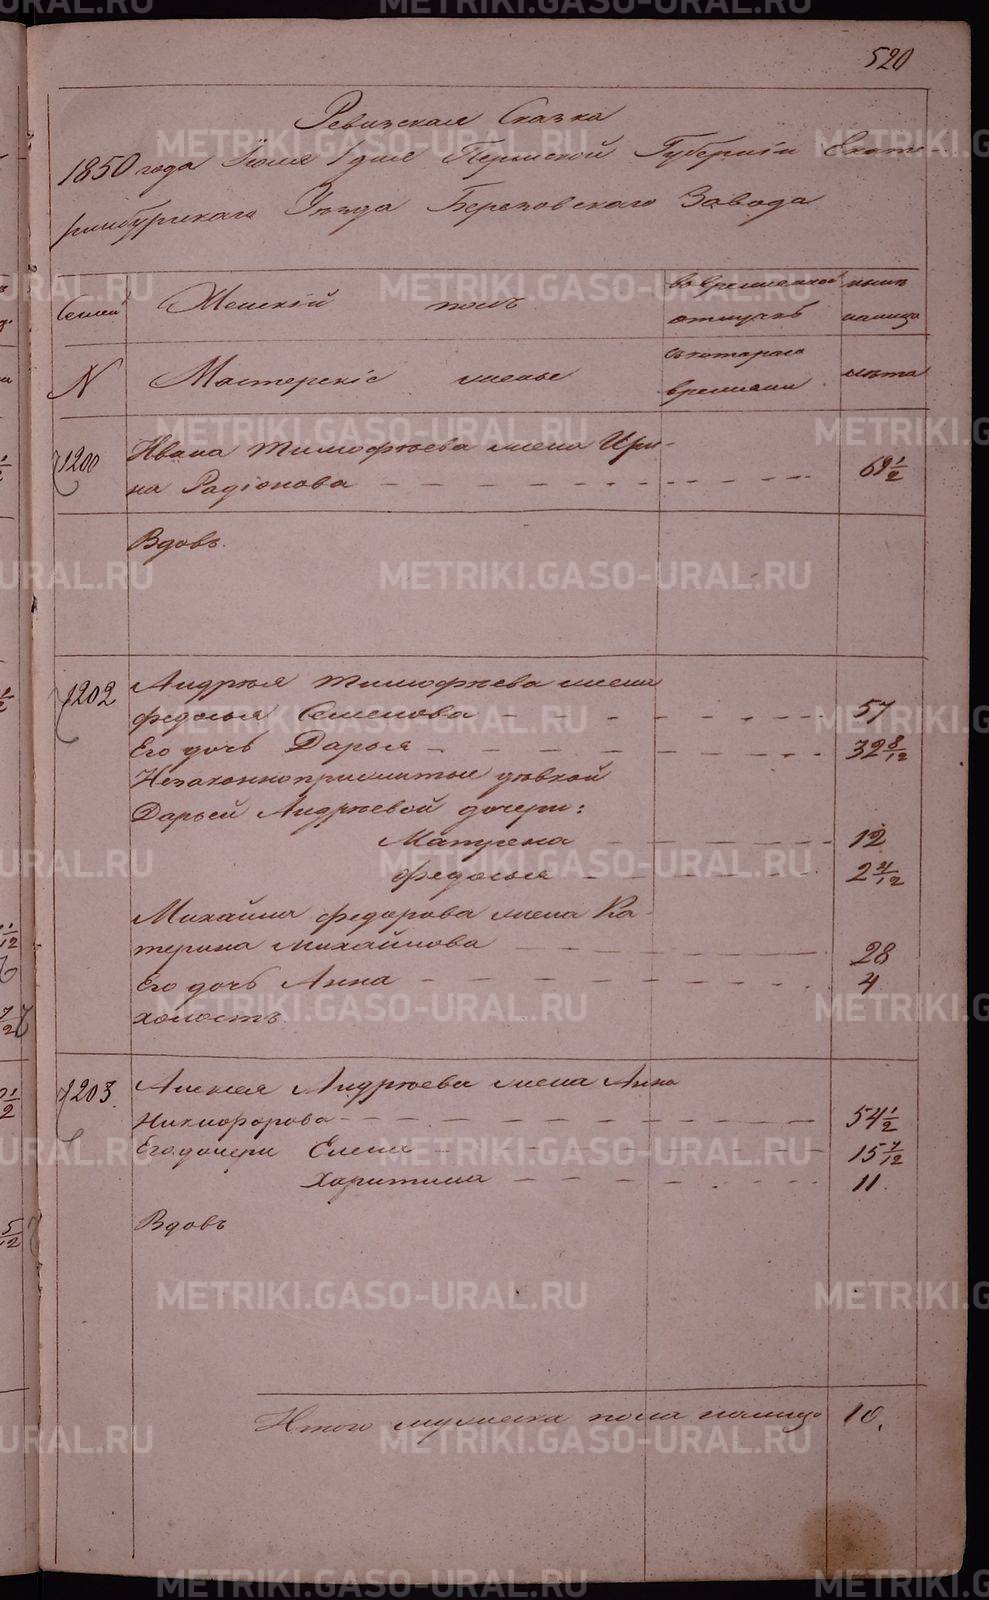 520
Ревизская Сказка
1850 года Июля 1 дня Пермской Губернiи Екате
ринбургскаго Уѣзда Березовскаго Завода
Семей Женскiй полъ во временной отлучкѣ нынѣ налицо
N Мастерскiе жены съ котораго времени лѣта
1200 Ивана Тимофѣева жена Ири-
на Радiонова 69 1/2
Вдовъ.
1202 Андрѣя Тимофѣева жена
Федосья Семенова 57
Его дочь Дарья 32 8/12
Незаконноприжитые дѣвкой
Дарьей Андрѣевой дочери:
Матрена 12
Федосья 2 4/12
Михайла Федорова жена Ка-
терина Михайлова 28
Его дочь Анна 4
холостъ.
1203. Алексея Андрѣева жена Анна
Никифорова 54 1/2
Его дочери Елена 15 7/12
Харитина 11.
Вдовъ
Итого женска пола налицо 10.
METRIKI.GASO-URAL.RU